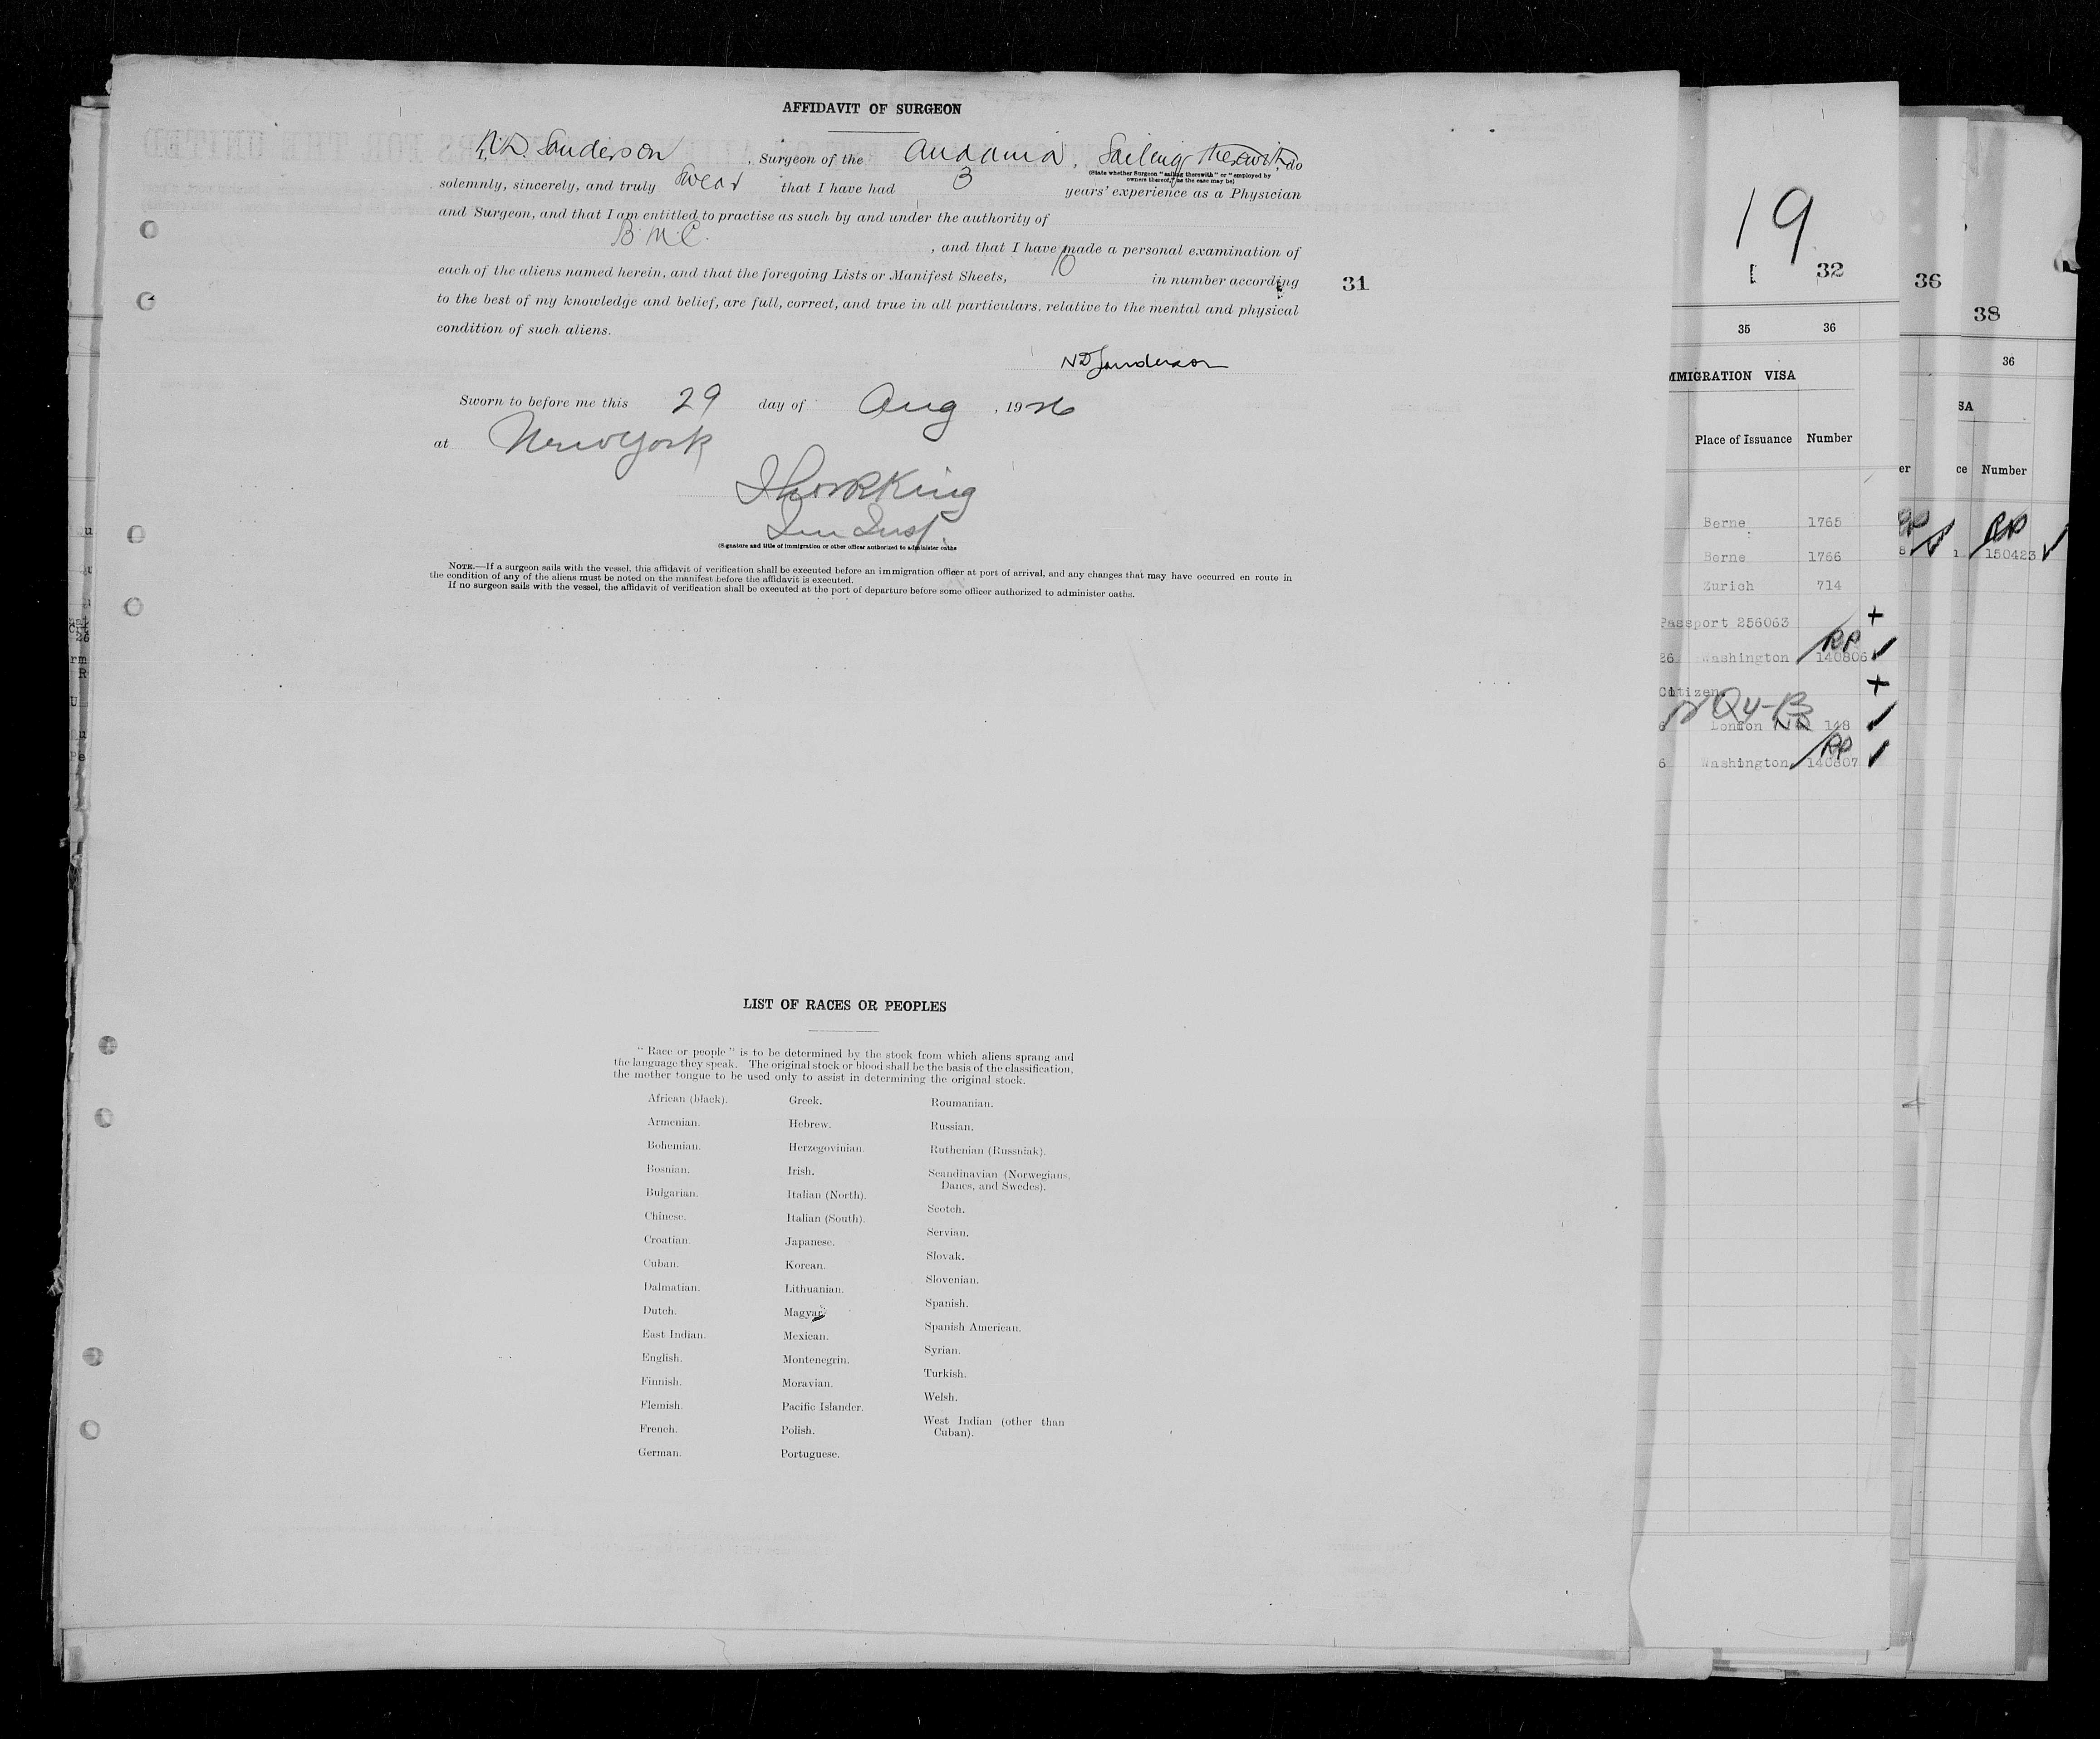 AFFIDAVIT OF SURGEON
N.D. Sanderson, Surgeon of the Andania, Sailing therewith, do
(State whether Surgeon "sailing therewith" or "employed by
owners thereof," as the case may be)
solemnly, sincerely, and truly swear that I have had 3 years' experience as a Physician
and Surgeon, and that I am entitled to practise as such by and under the authority of
B.M.C. , and that I have made a personal examination of
each of the aliens named herein, and that the foregoing Lists or Manifest Sheets, 10 in number according
to the best of my knowledge and belief, are full, correct, and true in all particulars, relative to the mental and physical
condition of such aliens.
ND Sanderson
Sworn to before me this 29 day of Aug , 1926
at New York
King
Imm Insp.
(Signature and title of immigration or other officer authorized to administer oaths
NOTE.—If a surgeon sails with the vessel, this affidavit of verification shall be executed before an immigration officer at port of arrival, and any changes that may have occurred en route in
the condition of any of the aliens must be noted on the manifest before the affidavit is executed.
If no surgeon sails with the vessel, the affidavit of verification shall be executed at the port of departure before some officer authorized to administer oaths.
31
LIST OF RACES OR PEOPLES
"Race or people" is to be determined by the stock from which aliens sprang and
the language they speak. The original stock or blood shall be the basis of the classification,
the mother tongue to be used only to assist in determining the original stock.
African (black).
Armenian.
Bohemian.
Bosnian.
Bulgarian.
Chinese.
Croatian.
Cuban.
Dalmatian.
Dutch.
East Indian.
English.
Finnish.
Flemish.
French.
German.
Greek.
Hebrew.
Herzegovinian.
Irish.
Italian (North).
Italian (South).
Japanese.
Korean.
Lithuanian.
Magyar.
Mexican.
Montenegrin.
Moravian.
Pacific Islander.
Polish.
Portuguese.
Roumanian.
Russian.
Ruthenian (Russniak).
Scandinavian (Norwegians,
Danes, and Swedes).
Scotch.
Servian.
Slovak.
Slovenian.
Spanish.
Spanish American.
Syrian.
Turkish.
Welsh.
West Indian (other than
Cuban).
19
32
35 36
MMIGRATION VISA
Place of Issuance Number
Berne 1765
Berne 1766
Zurich 714
Passport 256063 +
RP
26 Washington 140806 ✓
Citizen +
QV-B
6 London 148 ✓
RP
6 Washington 140807 ✓
36
38
36
SA
er ce Number
RP RP
8 150423 ✓